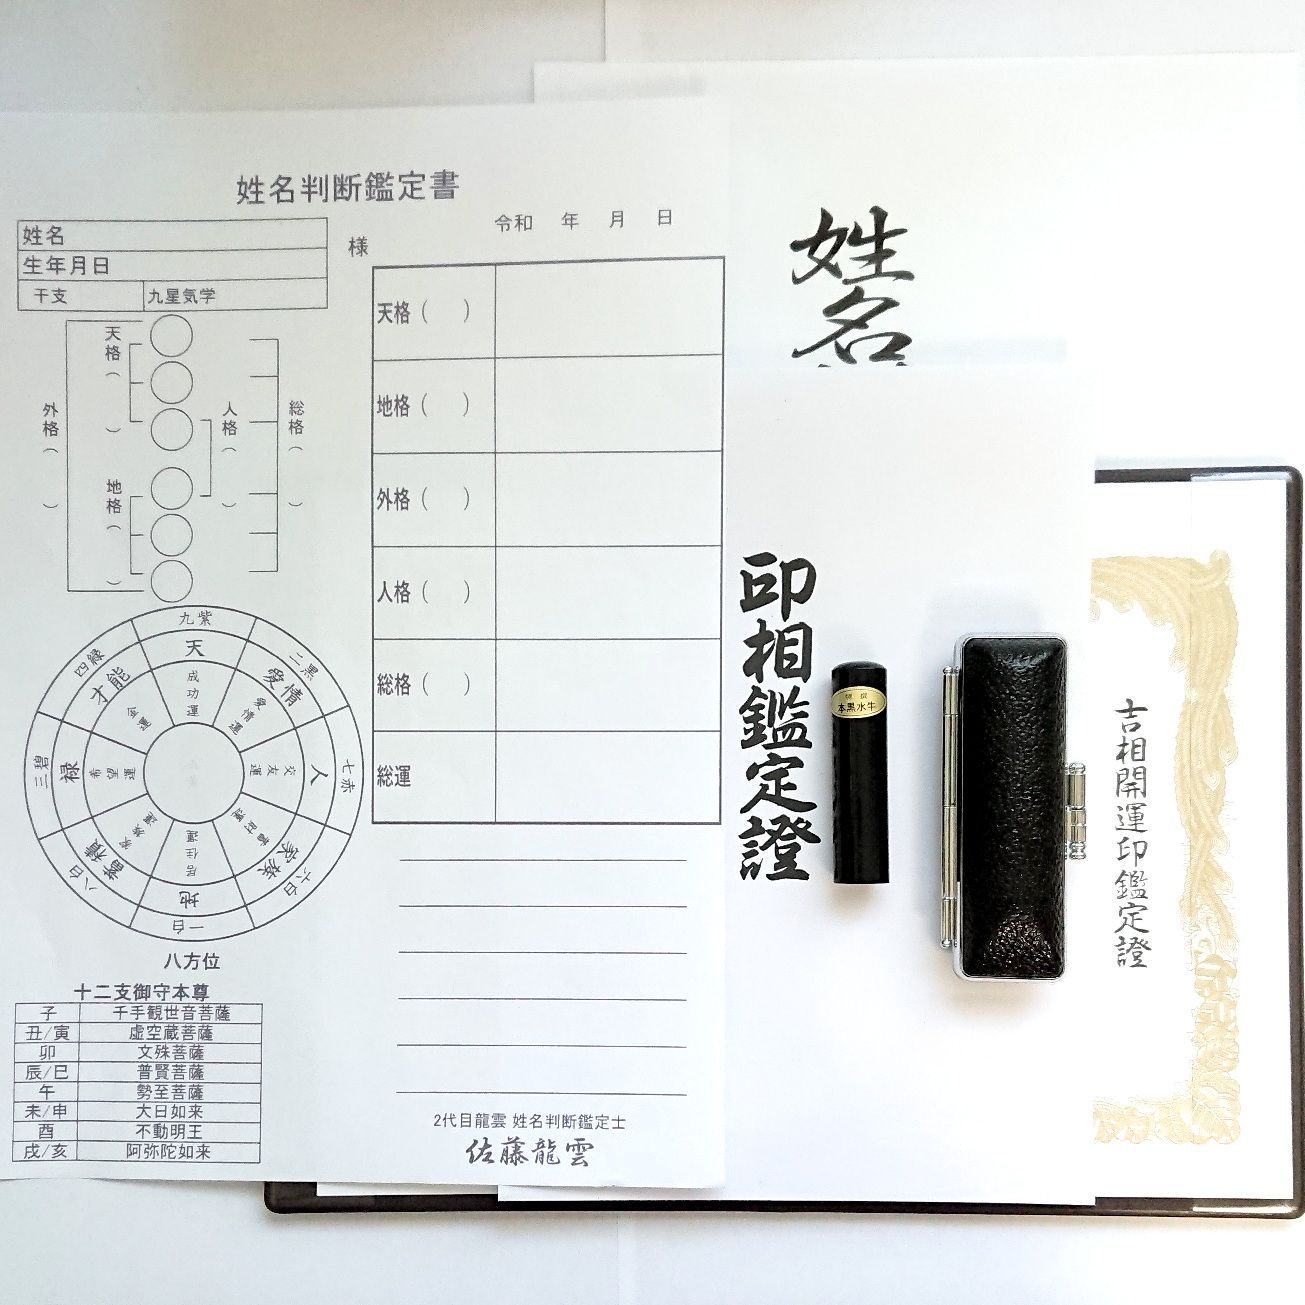 姓名判断鑑定書
令和　年　月　日
姓名
様
生年月日
干支
九星気学
天格（　）
地格（　）
外格（　）
人格（　）
総格（　）
天格（　）
地格（　）
外格（　）
人格（　）
総格（　）
総運
九紫
二黒
七赤
六白
一白
八白
三碧
四緑
天
愛情
人
家族
地
蓄積
禄
才能
成功運
愛情運
交友運
蓄財運
居住運
家族運
希望運
金運
八方位
十二支御守本尊
子 千手観世音菩薩
丑/寅 虚空蔵菩薩
卯 文殊菩薩
辰/巳 普賢菩薩
午 勢至菩薩
未/申 大日如来
酉 不動明王
戌/亥 阿弥陀如来
2代目龍雲 姓名判断鑑定士
佐藤龍雲
姓名
印相鑑定證
特撰
本黒水牛
吉相開運印鑑定證